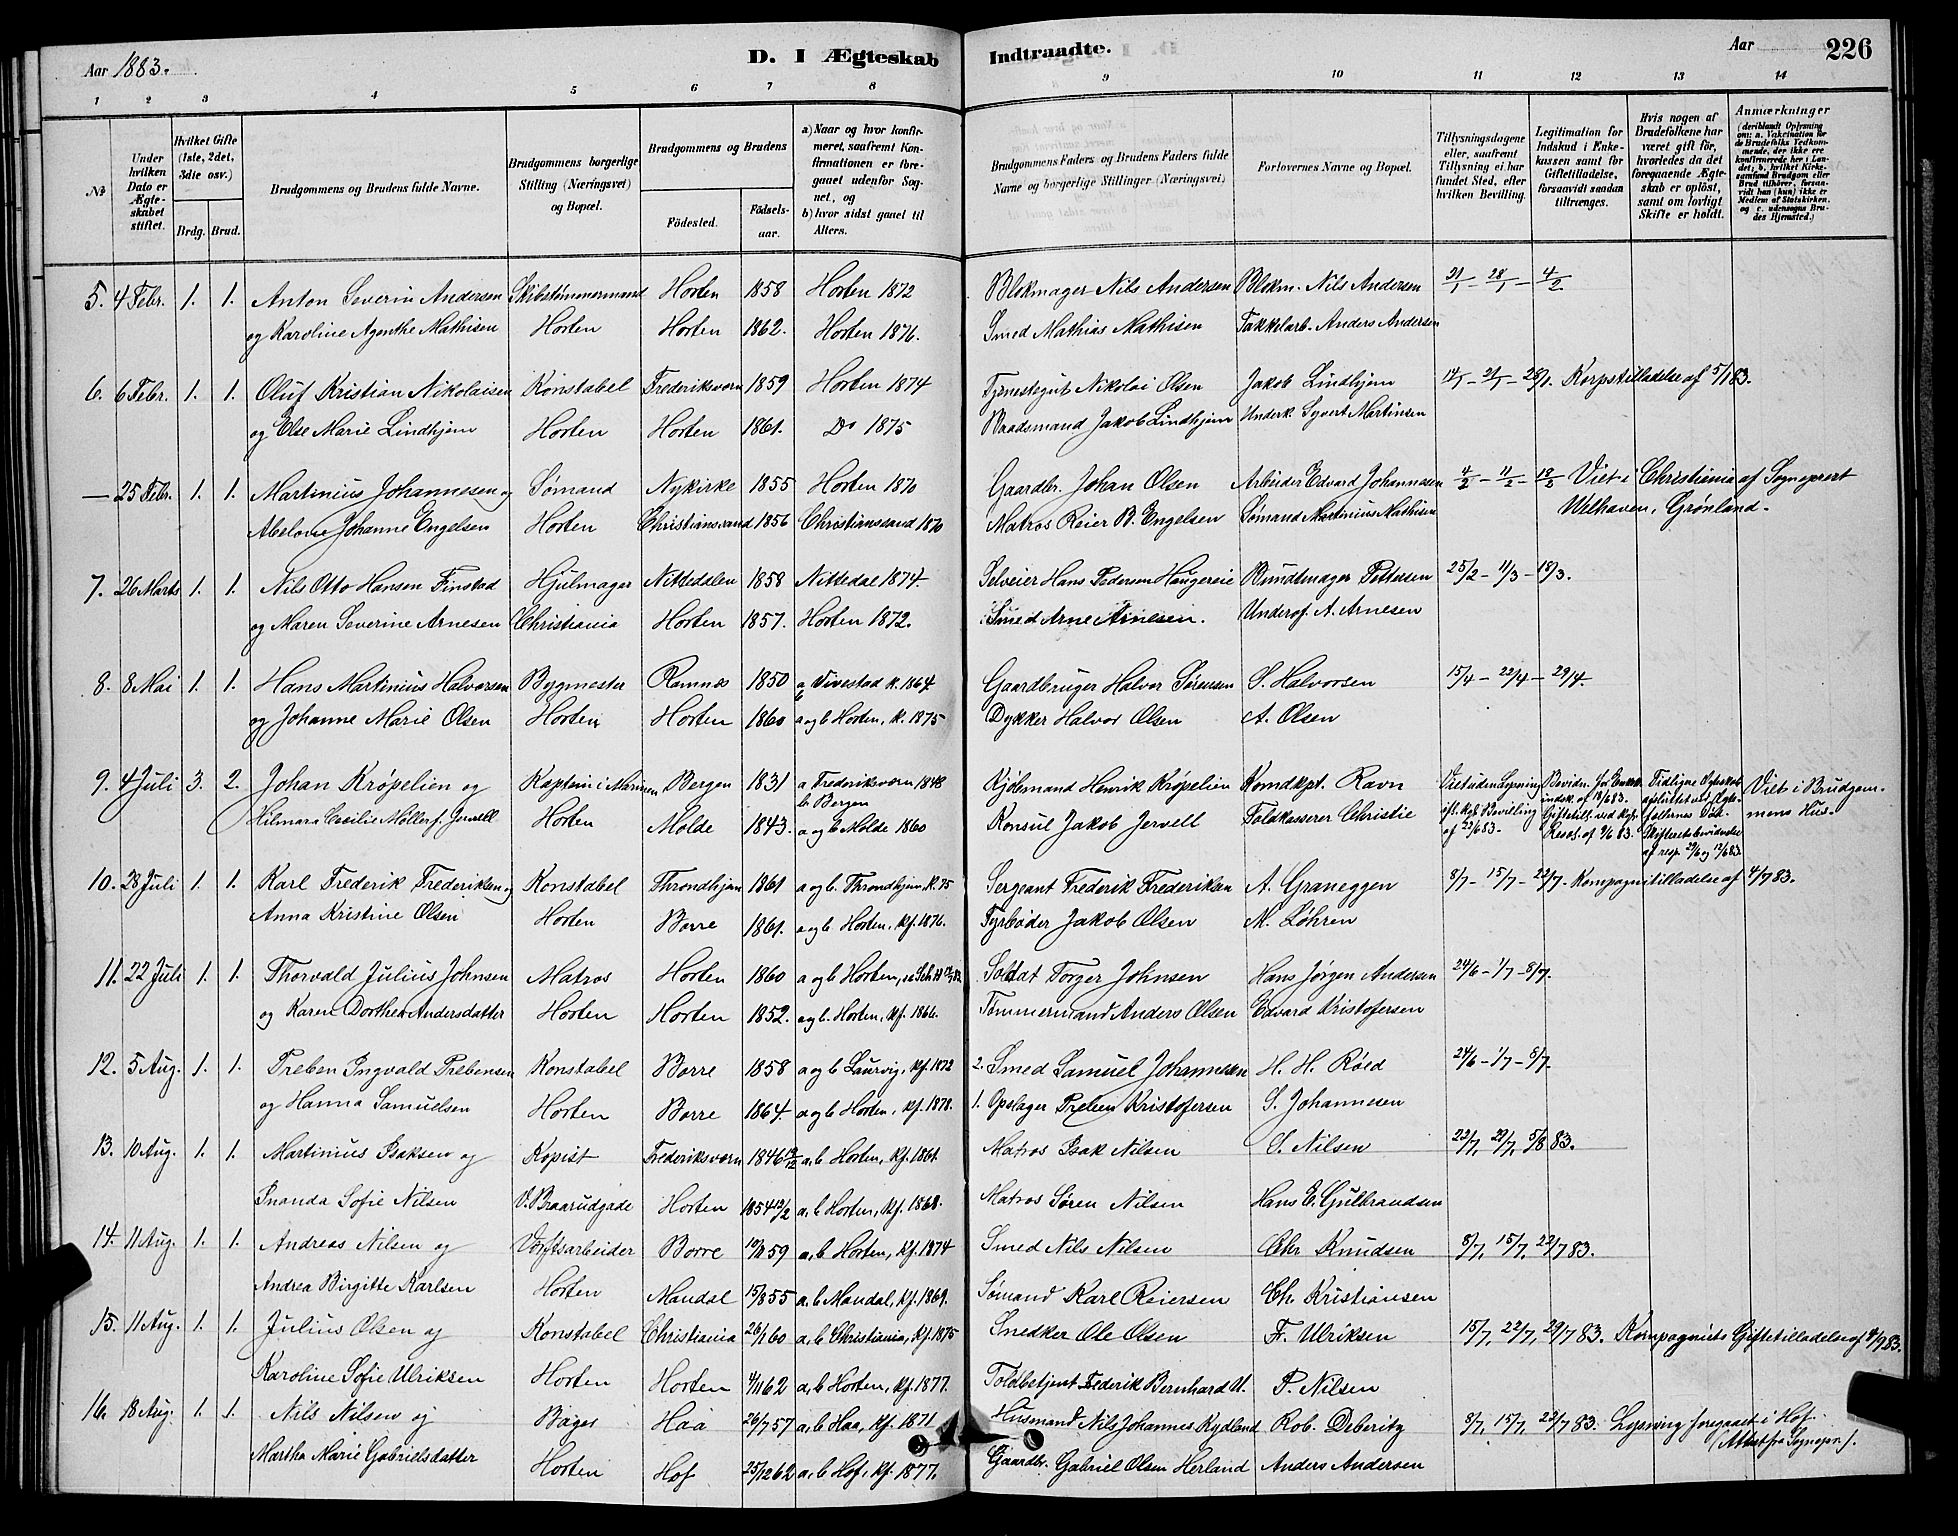 Aar 1883.
D. I Ægteskab Indtraadte.
Aar
226
1 2 3 4 5 6 7 8 9 10 11 12 13 14
№
Under hvilken Dato er Ægteskabet stiftet.
Hvilket Gifte (1ste, 2det, 3die osv.)
Brdg. Brud.
Brudgommens og Brudens fulde Navne.
Brudgommens borgerlige Stilling (Næringsvei) og Bopæl.
Brudgommens og Brudens
Födested.
Födselsaar.
a) Naar og hvor konfirmeret, saafremt Konfirmationen er foregaaet udenfor Sognet, og
b) hvor sidst gaaet til Alters.
Brudgommens Faders og Brudens Faders fulde Navne og borgerlige Stillinger (Næringsvei)
Forlovernes Navne og Bopæl.
Tillysningsdagene eller, saafremt Tillysning ei har fundet Sted, efter hvilken Bevilling.
Legitimation for Indskud i Enkekassen samt for Giftetilladelse, forsaavidt saadan tiltrænges.
Hvis nogen af Brudefolkene har været gift för, hvorledes da det foregaaende Ægteskab er oplöst, samt om lovligt Skifte er holdt.
Anmærkninger (deriblandt Oplysning om: a. Vakcination for de Brudefolks Vedkommende, der ikke ere konfirmerede her i Landet, b. hvilket Kirkesamfund Brudgom eller Brud tilhörer, forsaavidt han (hun) ikke er Medlem af Statskirken, og c. udensogns Brudes Hjemsted.)
5. 4 Febr. 1. 1. Anton Severin Andersen Skibstømmermand Horten 1858 Horten 1872 Blokmager Nils Andersen Blokm. Nils Andersen 21/1 - 28/1 - 4/2
og Karoline Agenthe Mathisen Horten Horten 1862. Horten 1876. Smed Mathias Mathisen Takkelarb. Anders Andersen
6. 6 Febr. 1. 1. Oluf Kristian Nikolaisen Konstabel Frederiksværn 1859 Horten 1874 Tjenestegut Nikolai Olsen Jakob Lindhjem 14/1 - 21/1 - 28/1. Korpstilladelse af 5/1 83.
og Else Marie Lindhjem Horten Horten 1861. Do 1875 Baadsmand Jakob Lindhjem Underk. Syvert Martinsen
— 25 Febr. 1. 1. Martinius Johannesen og Sømand Nykirke 1855 Horten 1870 Gaardbr. Johan Olsen Arbeider Edvard Johannesen 4/2 - 11/2 - 18/2 Viet i Christiania af Sogneprest
Abelone Johanne Engelsen Horten Christianssand 1856 Christianssand 1870 Matros Reier B. Engelsen Sømand Martinius Mathisen Welhaven, Grønland.
7. 26 Marts 1. 1. Nils Otto Hansen Finstad Hjulmager Nittedalen 1858 Nittedal 1874. Selveier Hans Pedersen Haugereie Bundtmager Pettersen 25/2 - 11/3 - 18/3.
og Maren Severine Arnesen Christiania Horten 1857. Horten 1872. Smed Arne Arnesen. Underof. A. Arnesen
8. 8 Mai 1. 1. Hans Martinius Halvorsen Bygmester Ramnes 1850 a Vivestad K. 1864. Gaardbruger Halvor Sørensen S. Halvorsen 15/4 - 22/4 - 29/4.
og Johanne Marie Olsen Horten Horten 1860 a og b Horten, K. 1875 Dykker Halvor Olsen A. Olsen
9. 4 Juli 3. 2. Johan Krøpelien og Kaptein i Marinen Bergen 1831 a Frederiksværn 1848 b Bergen Kjøbmand Henrik Krøpelien Komdkpt. Ravn Viet uden Lysning eft. kgl. Bevilling af 22/6 83. Bevidn. for Enkek. indsk. af 18/6 83. Giftetill. ved kgl. Resol. af 9/6 83. Tidligne Ægteskab afsluttet ved Ægtefællernes Død. Skifteretsbevidnelse af resp. 29/6 og 12/6 83. Viet i Brudgommens Hus.
Hilmara Cecilie Møller f. Jervell Horten Molde 1843. a og b Molde 1860 Konsul Jakob Jervell Toldkasserer Christie
10. 28 Juli 1. 1. Karl Frederik Frederiksen og Konstabel Throndhjem 1861 a og b. Throndhjem K. 75 Sergeant Frederik Frederiksen A. Graneggen 8/7 - 15/7 - 22/7. Kompagnitilladelse af 4/7 83.
Anna Kristine Olsen Horten Borre 1861. a og b. Horten, Kf. 1876. Fyrbøder Jakob Olsen M. Løhren
11. 22 Juli 1. 1. Thorvald Julius Johnsen Matros Horten 1860 a og b Horten, Soldat Torger Johnsen Hans Jørgen Andersen 24/6 - 1/7 - 8/7.
og Karen Dorthea Andersdatter Horten Horten 1852. a og b. Horten, Kf. 1866. Tømmermand Anders Olsen Edvard Kristofersen
12. 5 Aug. 1. 1. Preben Ingvald Prebensen Konstabel Borre 1858 a og b Laurvig, Kf. 1872 2. Smed Samuel Johannesen H. H. Røed 24/6 - 1/7 - 8/7.
og Hanna Samuelsen Horten Borre 1864. a og b Horten, Kf. 1878. 1. Opslager Preben Kristofersen S. Johannesen
13. 10 Aug. 1. 1. Martinius Isaksen og Kopist Frederiksværn 1846 19/12 a, b Horten, Kf. 1861. Matros Isak Nilsen S. Nilsen 22/7, 29/7, 5/8 83.
Inanda Sofie Nilsen V. Braarudgade Horten 1854 13/2 a, b Horten, Kf. 1868. Matros Søren Nilsen Hans E. Gulbrandsen
14. 11 Aug. 1. 1. Andreas Nilsen og Værftsarbeider Borre 10/8 59 a, b Horten, Kf. 1874 Smed Nils Nilsen Chr Knudsen 8/7, 15/7, 22/7 83.
Andrea Birgitte Karlsen Horten Mandal 15/8 55 a, b Mandal, Kf. 1869. Sømand Karl Reiersen Ch. Kristiansen
15. 11 Aug. 1. 1. Julius Olsen og Konstabel Christiania 26/1 60 a, b Christiania, Kf. 1875 Snedker Ole Olsen Fr. Ulriksen 15/7, 22/7, 29/7 83. Kompagniets Giftetilladelse af 4/9 83.
Karoline Sofie Ulriksen Horten Horten 4/11 62 a, b Horten, Kf. 1877. Toldbetjent Federik Bernhard U. P. Nilsen
16. 18 Aug. 1. 1. Nils Nilsen og Bager Haa 26/7 57 a, b Haa, Kf. 1871 Husmand Nils Johannes Rydland Rob. Deberitz 8/7, 15/7, 22/7 83. Lysning foregaaet i Hof.
Martha Marie Gabrielsdatter Horten Hof 25/12 62 a, b Hof, Kf. 1877. Gaardbr. Gabriel Olsen Herland Anders Andersen (Attest fra Sognepr.).